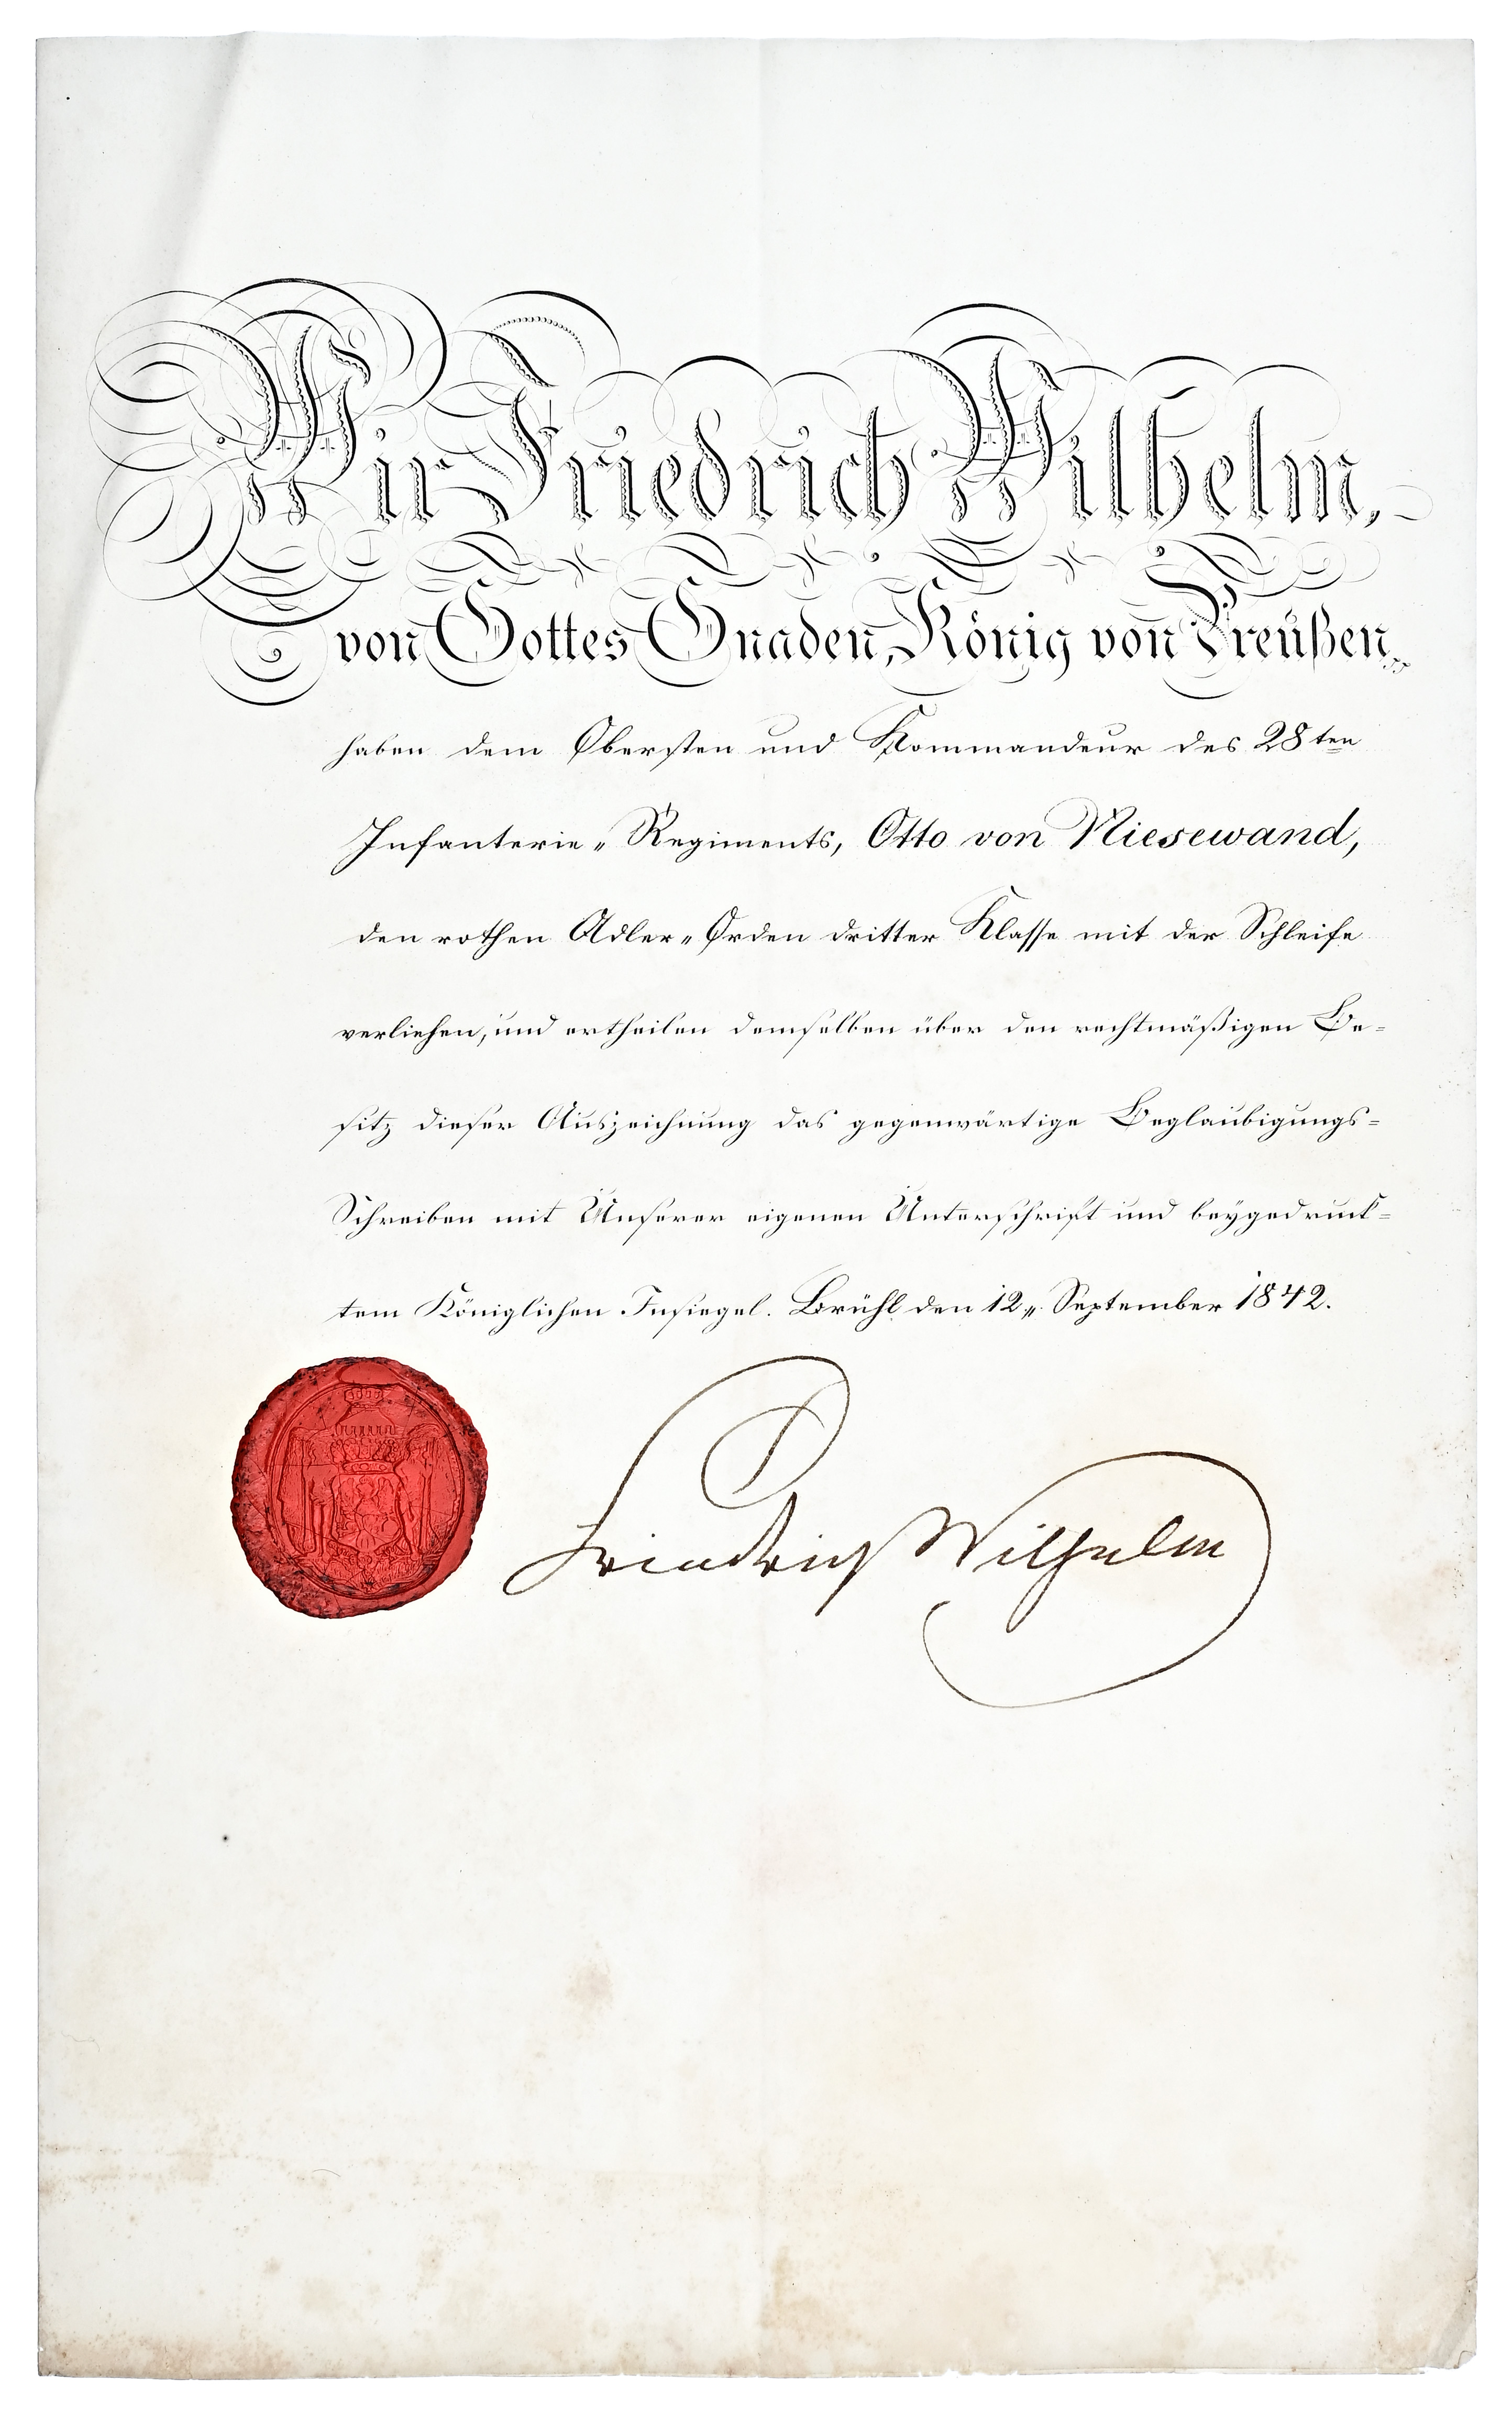 Wir Friedrich Wilhelm,
von Gottes Gnaden, König von Preußen
haben dem Obersten und Kommandeur des 28ten
Infanterie„Regiments, Otto von Niesewand,
den rothen Adler„Orden dritter Klasse mit der Schleife
verliehen, und ertheilen demselben über den rechtmäßigen Be=
sitz dieser Auszeichnung das gegenwärtige Beglaubigungs=
Schreiben mit Unserer eigenen Unterschrift und beygedruck=
tem Königlichen Insiegel. Brühl den 12„ September 1842.
Friedrich Wilhelm